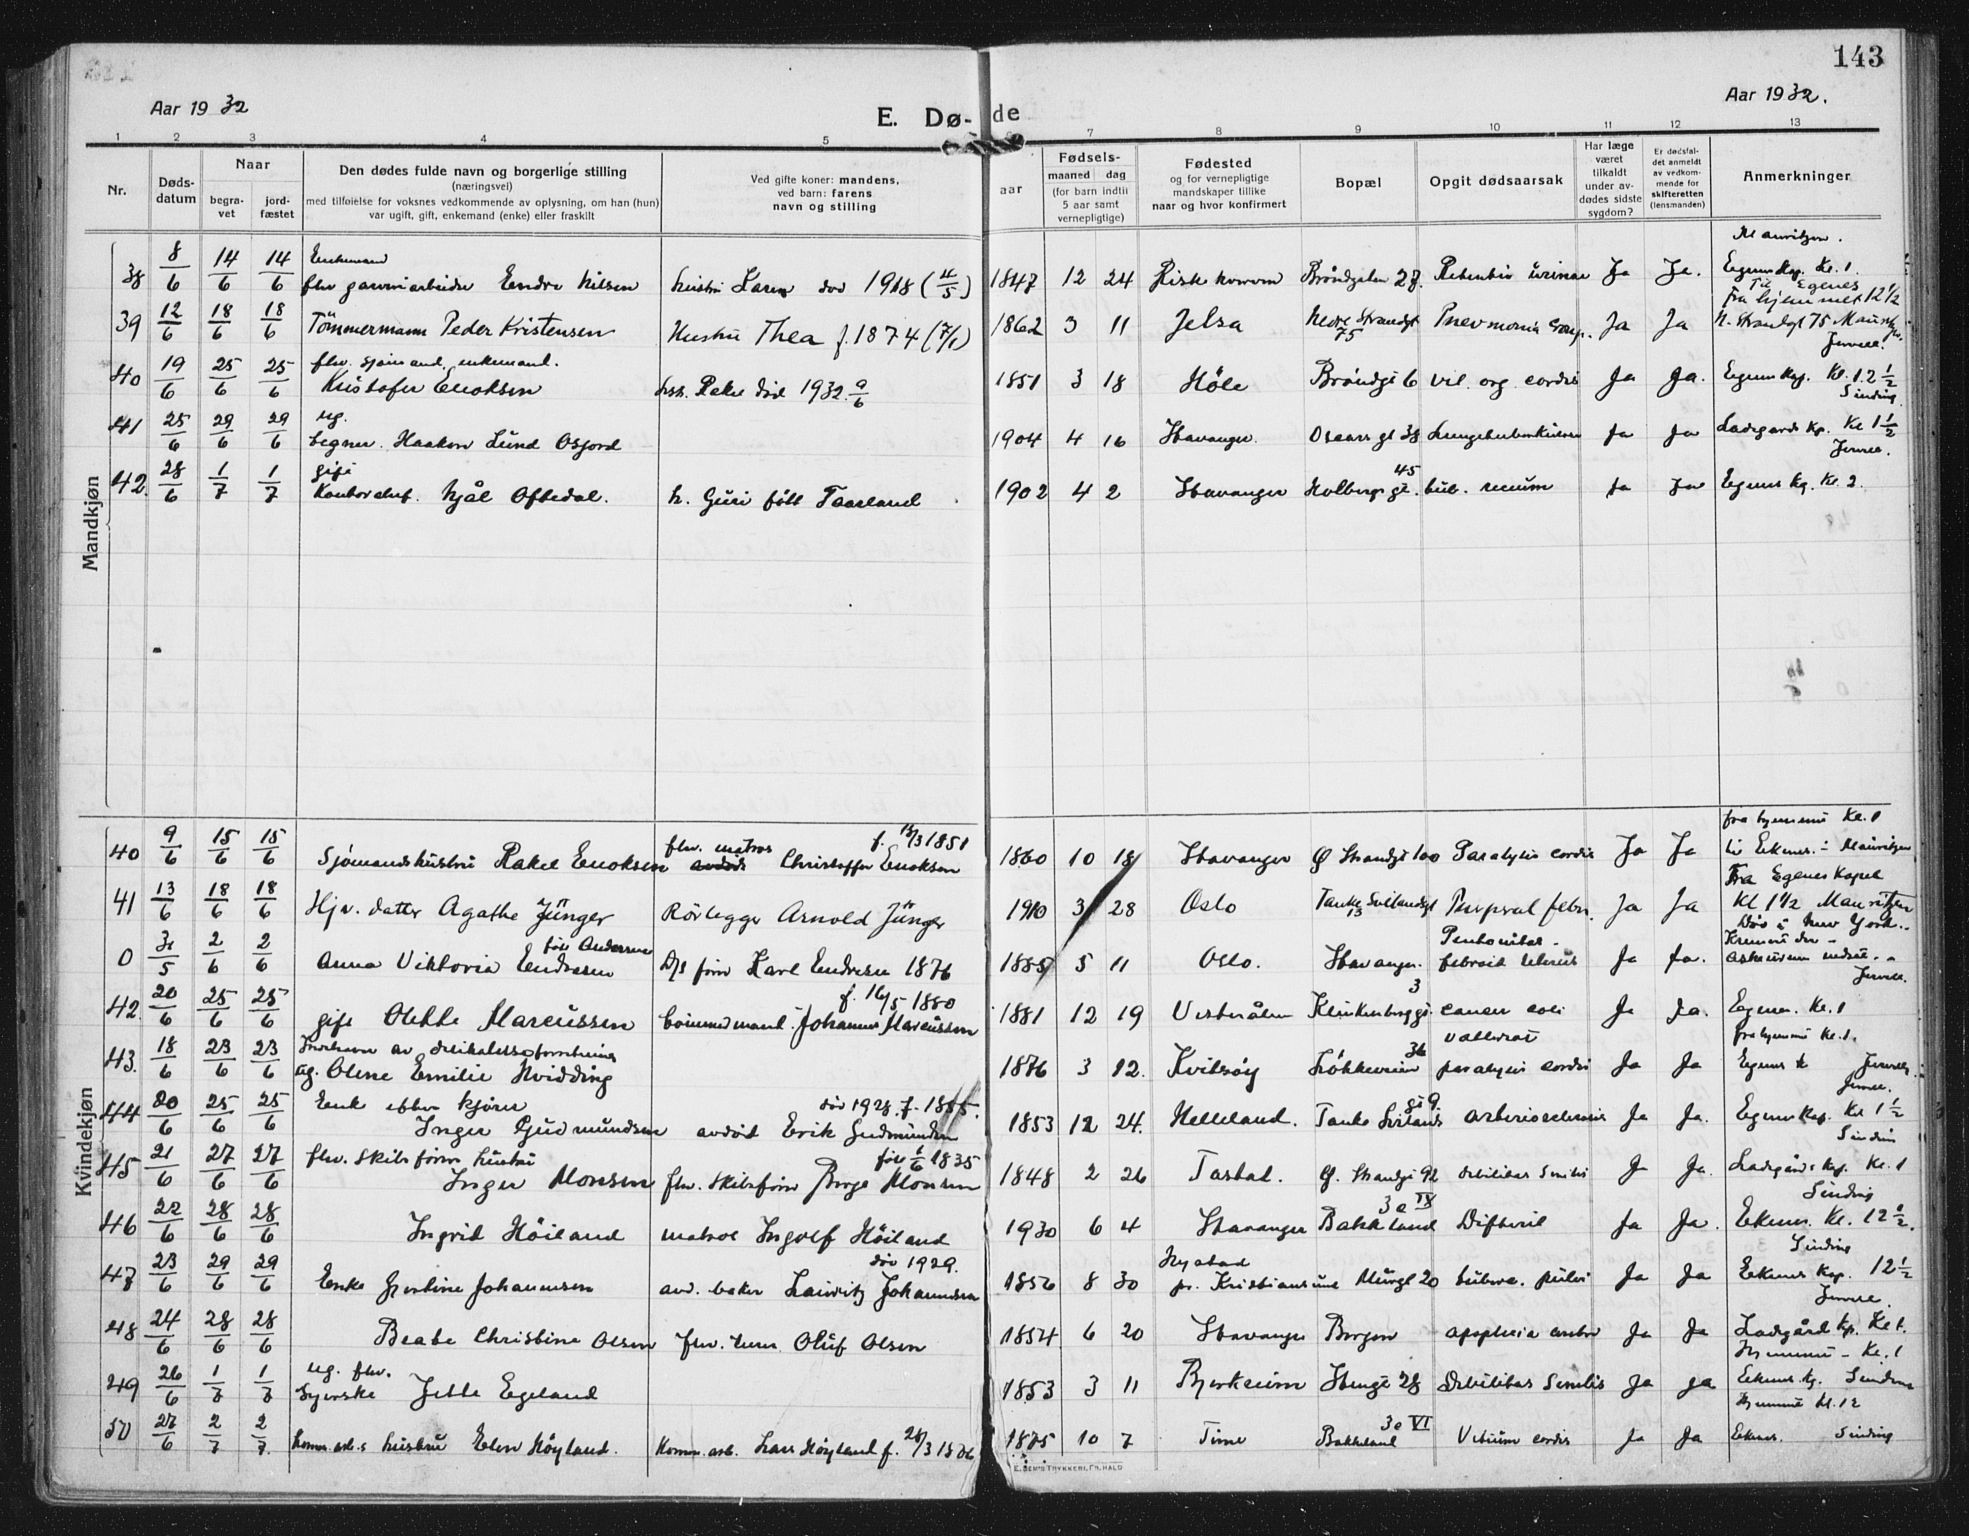 143
Aar 1932
E. Dø-de
Aar 1932.
1 2 3 4 5 7 8 9 10 11 12 13
Nr.
Døds-
datum
Naar
begra-
vet
jord-
fæstet
Den dødes fulde navn og borgerlige stilling
(næringsvei)
med tilføielse for voksnes vedkommende av oplysning, om han (hun)
var ugift, gift, enkemand (enke) eller fraskilt
Ved gifte koner: mandens,
ved barn: farens
navn og stilling
aar
Fødsels-
maaned dag
(for barn indtil
5 aar samt
vernepligtige)
Fødested
og for vernepligtige
mandskaper tillike
naar og hvor konfirmert
Bopæl
Opgit dødsaarsak
Har læge
været
tilkaldt
under av-
dødes sidste
sygdom?
Er dødsfal-
det anmeldt
av vedkom-
mende for
skifteretten
(lensmanden)
Anmerkninger
Mandkjøn
Enkemand Mauritzen.
38 8/6 14/6 14/6 flv garveriarbeider Endre Nilsen hustru Karen død 1918 (4/5) 1847 12 24 Brøndgaten 27. Ja Ja. Egenes kap. Kl. 1.
Til Egenes
Fra hjemmet 12 1/2
39 12/6 18/6 18/6 Tömmermann Peder Kristensen Hustru Thea f. 1874 (7/1) 1862 3 11 Jelsa Nedre Strandgt 75 Pnevmonia Ja Ja N. Strandgt 75 Jervell.
flv. sjömand, enkemand.
40 19/6 25/6 25/6 Kristofer Enoksen hustr. Rakel död 1932 9/6 1851 3 18 Höle Bröndgt 6 vit. org. cordis Ja Ja. Egenes kap. Kl. 1.2 1/2
Sinding.
ug.
41 25/6 29/6 29/6 tegner. Haakon Lund Osfjord 1904 4 16 Stavanger Oscars gt 38 Lungetuberkulose Ja Ja Ladegaards kp. Kl 1 1/2
Jervell.
gift
42. 28/6 1/7 1/7 Kontorchef. Njål Oftedal. h. Guri född Taarland 1902 4 2 Stavanger Holbergsgt. 45 Ja Ja Egenes kp. Kl. 2.
Kvindekjøn
flv. matros f. 13/3 1851 fra hjemmet Kl. 1
40 9/6 15/6 15/6 Sjömandshustru Rakel Enoksen Christoffer Enoksen 1860 10 18 Stavanger Ø Strandgt 100 Paralysis cordis Ja Ja til Eknes. Mauritzen
Fra Egenes Kapel
41 13/6 18/6 18/6 Hjv. datter Agathe Jünger Rörlegger Arnold Jünger 1910 3 28 Oslo Tanke Svilandsgt 13 Puerperal feber. Ja Ja Kl 1 1/2 Mauritzen
Död i New York.
född Andersen
0 31/5 2/6 2/6 Anna Viktoria Endresen D/s förer Karl Endresen 1876 1885 5 11 Oslo. Stavanger. Ja Ja.
Jervell.
f. 16/5 1880
42. 20/6 25/6 25/6 gift Olette Marcussen Johannes Marcussen 1881 12 19 Vesterålen Klinkenberggt. 3 cancer coli Ja Ja. Egenes. Kl. 1
fra hjemmet Kl. 1.
Indehaver av delikatesseforretning
43. 18/6 23/6 23/6 ug. Oline Emilie Hvidding 1876 3 12. Kvitsöy Lökkeveien 36 paralysis cordis Ja Ja Egenes k Jervell.
Jervell.
Enke efter kjörer död 1928. f. 1855.
44 20/6 25/6 25/6 Inger Gudmundsen avdöd Erik Gudmundsen 1853 12 24. Helleland. Tanke Svilands gt 9 Arteriosclerosis Ja Ja. Egenes kap. Kl 1 1/2
Sinding
flv. Skibsförers hustru föd 1/6 1835
45 21/6 27/6 27/6 Inger Monsen flv. Skibsförer Börge Monsen 1848 2 26 Tastad. Ø. Strandgt 92 Debilitas Senilis Ja Ja. Ladegårds kap. Kl. 1
Sinding
46 22/6 28/6 28/6 Ingrid Höiland matros Ingolf Höiland 1930 6 4 Stavanger Bakkeland 3e IX Difteri Ja Ja. Eknes. Kl. 12 1/2.
Sinding
död 1929.
47 23/6 29/6 29/6 Enke Johannesen avd. baker Lauritz Johannesen 1856 8 30 pr. Kristiansund Murgt 20 Ja Ja Eknes kap. 12 1/2
Jervell.
48 24/6 28/6 28/6 Beate Christine Olsen flv. Oluf Olsen 1854 6 20 Stavanger Bergen apoplexia cerebri Ja Ja Ladegård kp. Kl 1.
Hjemmet - Kl. 1
ug. flv.
49 26/6 1/7 1/7 Syerske Jette Egeland 1853 3 11 Bjerkreim Stengt 28 Debilitas Senilis Ja Ja Eknes kp. Sinding
Hjemmet kl. 12
50 27/6 2/7 2/7. Komm. arb.s hustru Elen Höyland. Komm. arb. Lars Höyland f. 28/3 1876 1875 10 7 Time Bakkeland 3e VI Vitium cordis Ja Ja Eknes. Sinding
E. SEM's TRYKKERI, FR.HALD